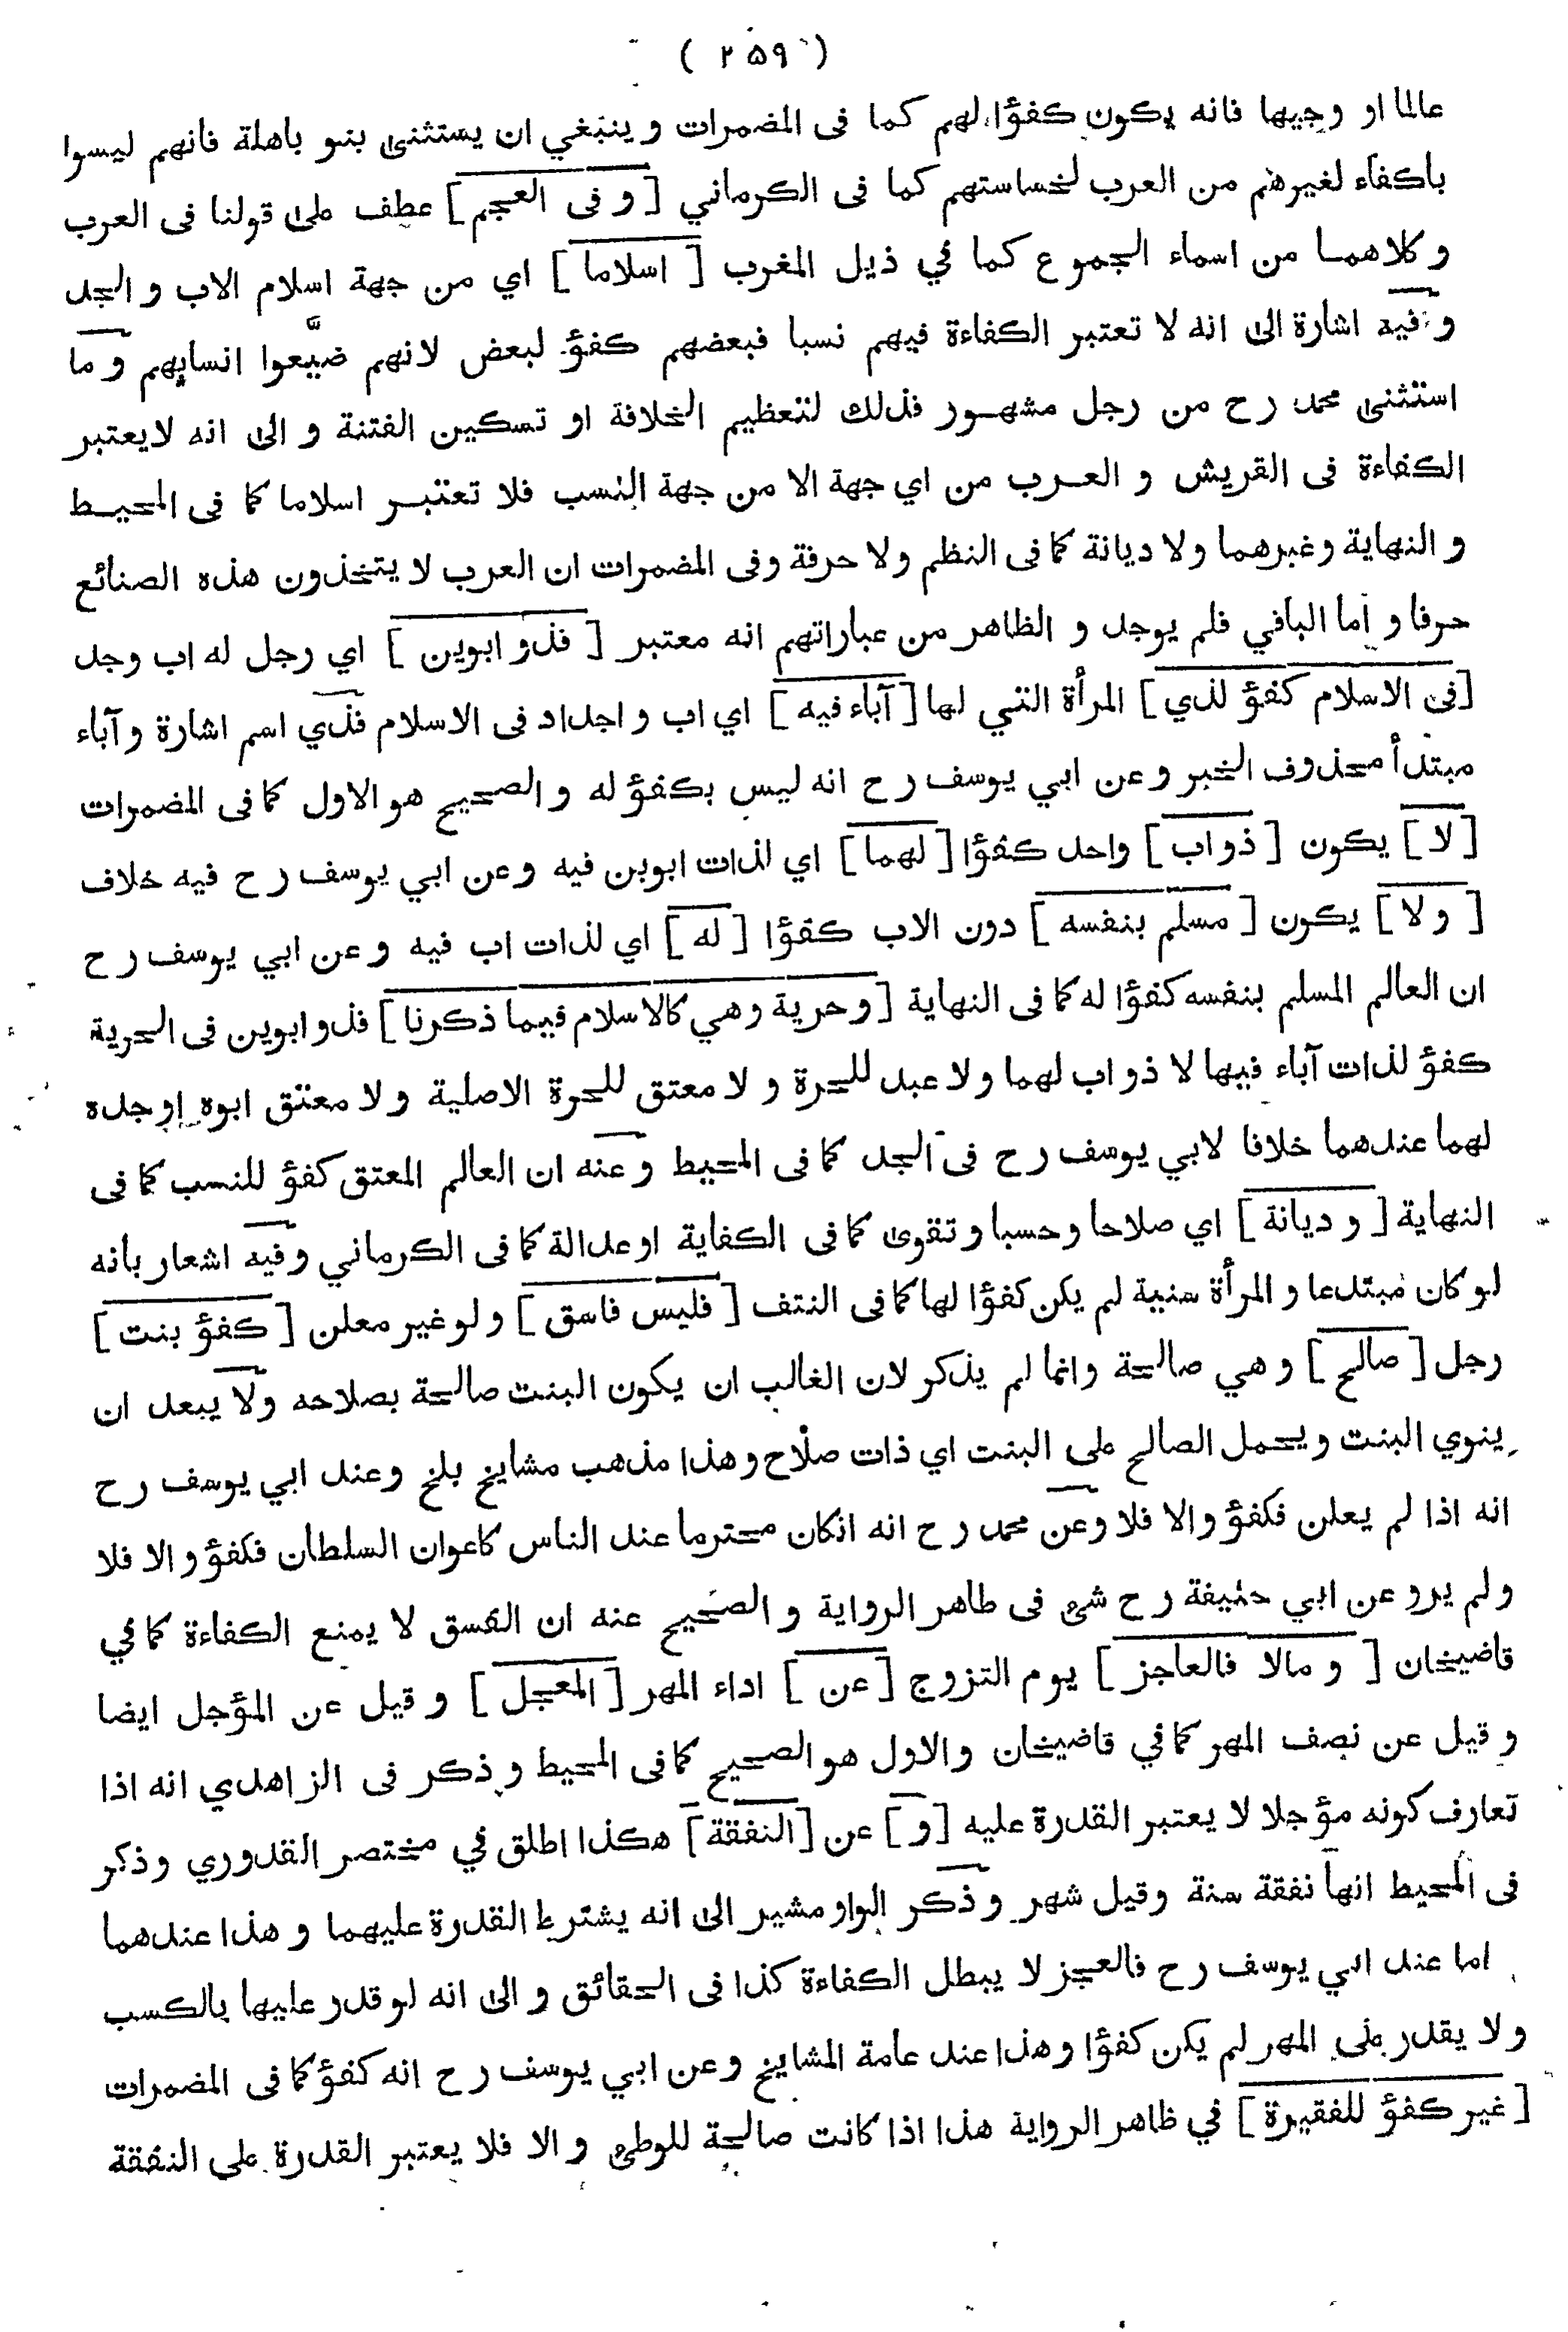 ( ٢٥٩ )
عالما او وجيها فانه يكون كفؤا لهم كما فى المضمرات و ينبغي ان يستثنى بنو باهلة فانهم ليسوا
باكفاء لغيرهم من العرب لخساستهم كما فى الكرماني [ و فى العجم ] عطف على قولنا فى العرب
و كلاهما من اسماء الجموع كما في ذيل المغرب [ اسلاما ] اي من جهة اسلام الاب و الجد
و فيه اشارة الى انه لا تعتبر الكفاءة فيهم نسبا فبعضهم كفؤ لبعض لانهم ضيَّعوا انسابهم و ما
استثنى محمد رح من رجل مشهور فذلك لتعظيم الخلافة او تسكين الفتنة و الى انه لايعتبر
الكفاءة فى القريش و العرب من اي جهة الا من جهة النسب فلا تعتبر اسلاما كما فى المحيط
و النهاية وغيرهما ولا ديانة كما فى النظم ولا حرفة وفى المضمرات ان العرب لا يتخذون هذه الصنائع
حرفا و اما الباقي فلم يوجد و الظاهر من عباراتهم انه معتبر [ فذو ابوين ] اي رجل له اب وجد
[ فى الاسلام كفؤ لذي ] المرأة التي لها [ آباء فيه ] اي اب و اجداد فى الاسلام فذي اسم اشارة و آباء
مبتدأ محذوف الخبر و عن ابي يوسف رح انه ليس بكفؤ له و الصحيح هو الاول كما فى المضمرات
[ لا ] يكون [ ذو اب ] واحد كفؤا [ لهما ] اي لذات ابوين فيه و عن ابي يوسف رح فيه خلاف
[ و لا ] يكون [ مسلم بنفسه ] دون الاب كفؤا [ له ] اي لذات اب فيه و عن ابي يوسف رح
ان العالم المسلم بنفسه كفؤا له كما فى النهاية [ و حرية وهي كالاسلام فيما ذكرنا ] فذو ابوين فى الحرية
كفؤ لذات آباء فيها لا ذو اب لهما ولا عبد للحرة و لا معتق للحرة الاصلية و لا معتق ابوه او جده
لهما عندهما خلافا لابي يوسف رح فى الجد كما فى المحيط و عنه ان العالم المعتق كفؤ للنسب كما فى
النهاية [ و ديانة ] اي صلاحا وحسبا و تقوى كما فى الكفاية او عدالة كما فى الكرماني و فيه اشعار بانه
لو كان مبتدعا و المرأة سنية لم يكن كفؤا لها كما فى النتف [ فليس فاسق ] و لو غير معلن [ كفؤ بنت ]
رجل [ صالح ] و هي صالحة وانما لم يذكر لان الغالب ان يكون البنت صالحة بصلاحه ولا يبعد ان
ينوي البنت ويحمل الصالح على البنت اي ذات صلاح وهذا مذهب مشايخ بلخ وعند ابي يوسف رح
انه اذا لم يعلن فكفؤ والا فلا وعن محمد رح انه انكان محترما عند الناس كاعوان السلطان فكفؤ والا فلا
ولم يرو عن ابي حنيفة رح شئ فى ظاهر الرواية و الصحيح عنه ان الفسق لا يمنع الكفاءة كما في
قاضيخان [ و مالا فالعاجز ] يوم التزوج [ عن ] اداء المهر [ المعجل ] و قيل عن المؤجل ايضا
و قيل عن نصف المهر كما في قاضيخان والاول هو الصحيح كما فى المحيط و ذكر فى الزاهدي انه اذا
تعارف كونه مؤجلا لا يعتبر القدرة عليه [ و ] عن [ النفقة ] هكذا اطلق في مختصر القدوري وذكر
فى المحيط انها نفقة سنة وقيل شهر و ذكر الواو مشير الى انه يشترط القدرة عليهما و هذا عندهما
اما عند ابي يوسف رح فالعجز لا يبطل الكفاءة كذا فى الحقائق و الى انه لو قدر عليها بالكسب
و لا يقدر على المهر لم يكن كفؤا وهذا عند عامة المشايخ وعن ابي يوسف رح انه كفؤ كما فى المضمرات
[ غير كفؤ للفقيرة ] في ظاهر الرواية هذا اذا كانت صالحة للوطئ و الا فلا يعتبر القدرة على النفقة